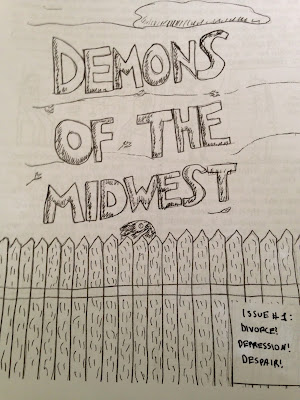 DEMONS
OF THE
MIDWEST
ISSUE #1:
DIVORCE!
DEPRESSION!
DESPAIR!